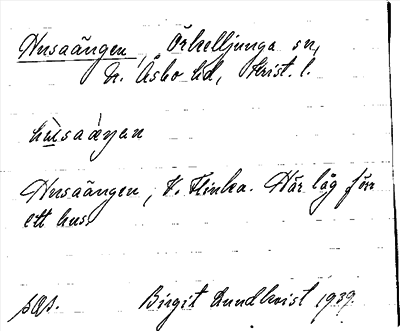 Husaängen, Örkelljunga sn,
N. Åsbo hd, Krist. l.
hùsaàŋan
Husaängen, V. Flinka. Här låg förr
ett hus.
Birgit Lundkvist 1939.